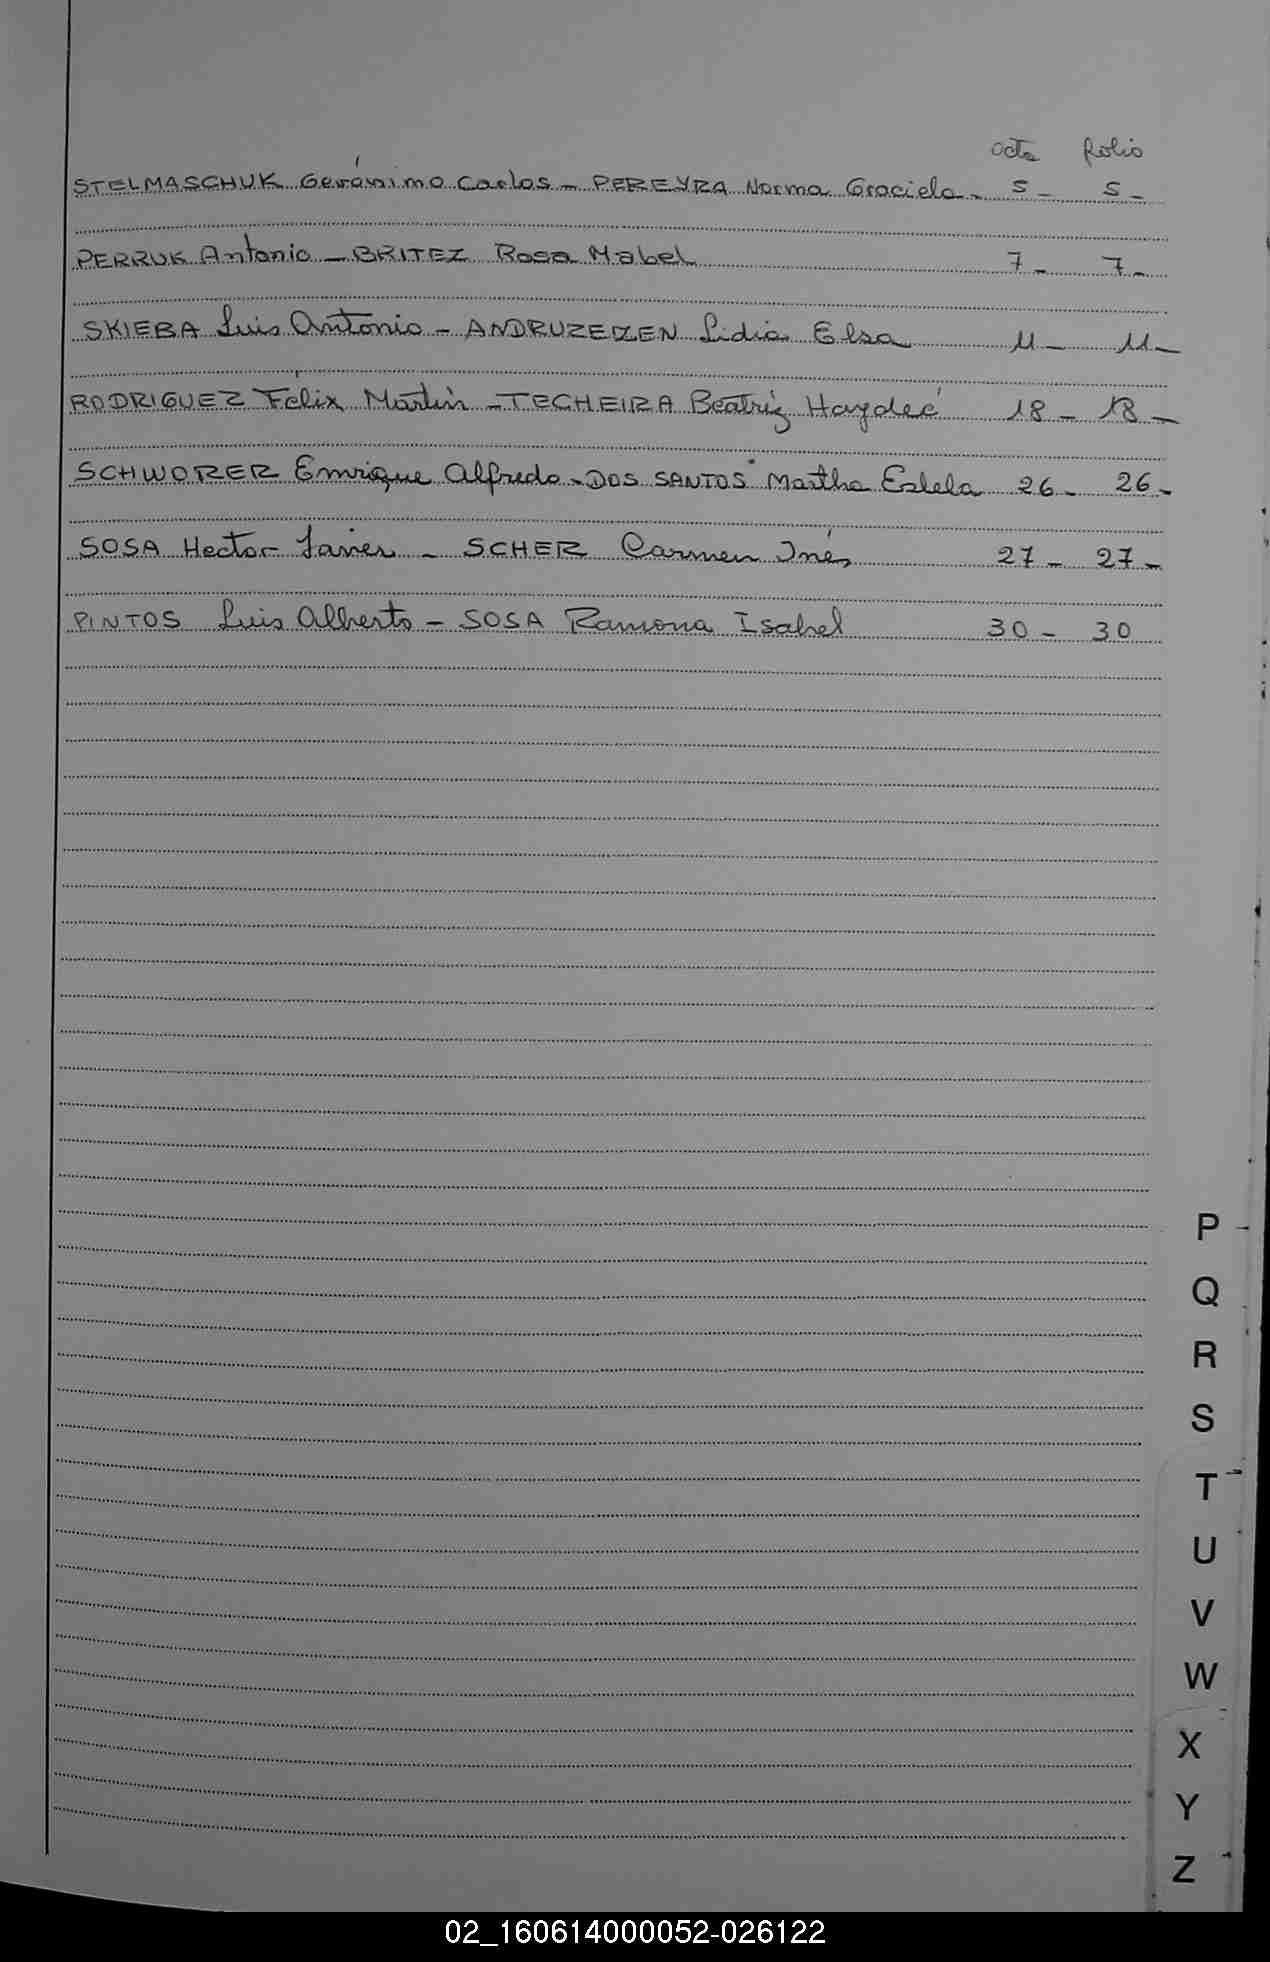 acta folio
STELMASCHUK Gerónimo Carlos - PEREYRA Norma Graciela - 5 - 5 -
PERRUK Antonio - BRITEZ Rosa Mabel 7 - 7 -
SKIEBA Luis Antonio - ANDRUZEZEN Lidia Elsa 11 - 11 -
RODRIGUEZ Félix Martin - TECHEIRA Beatriz Haydeé 18 - 18 -
SCHWORER Enrique Alfredo - DOS SANTOS Martha Estela 26 - 26 -
SOSA Hector Javier - SCHER Carmen Inés 27 - 27 -
PINTOS Luis Alberto - SOSA Ramona Isabel 30 - 30
P
Q
R
S
T
U
V
W
X
Y
Z
02_160614000052-026122